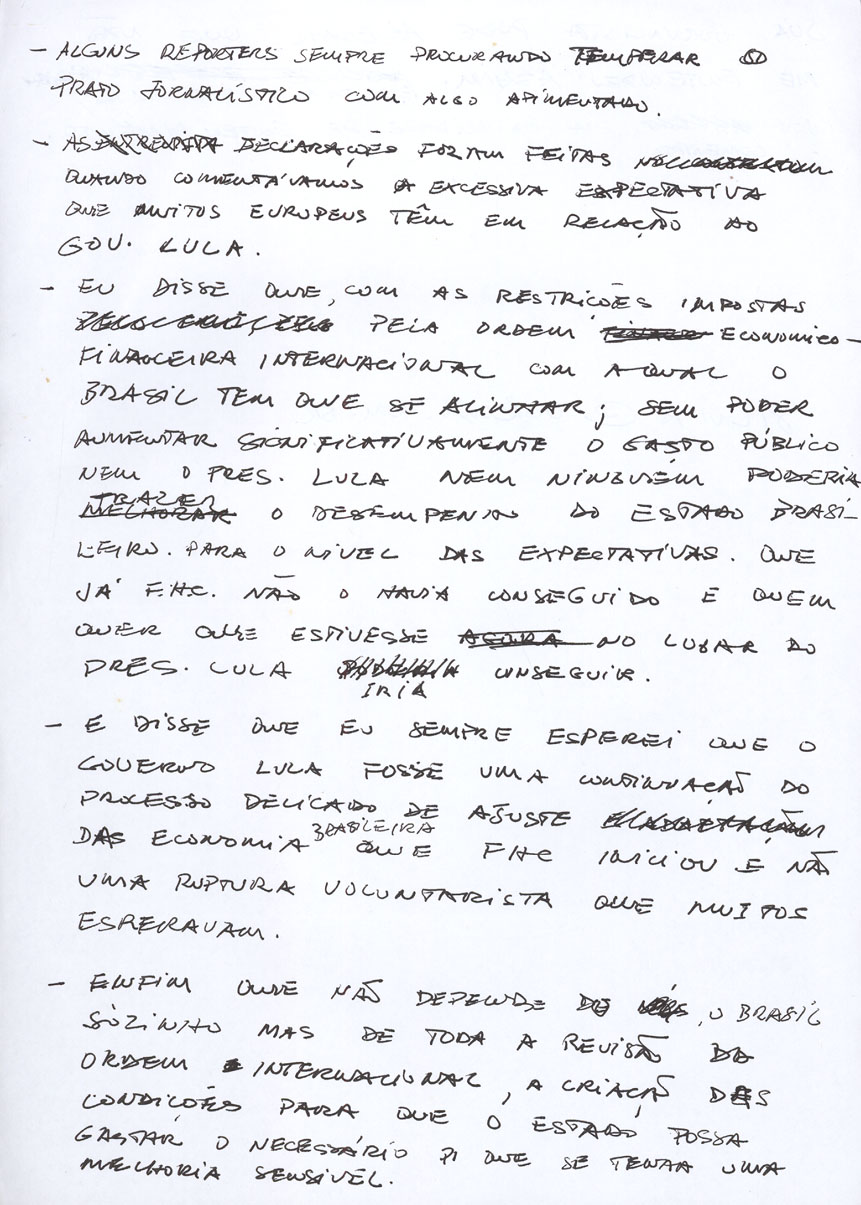 - ALGUNS REPORTERS SEMPRE PROCURANDO TEMPERAR O
PRATO JORNALÍSTICO COM ALGO APIMENTADO.
- AS DECLARAÇÕES FORAM FEITAS
QUANDO COMENTÁVAMOS A EXCESSIVA EXPECTATIVA
QUE MUITOS EUROPEUS TÊM EM RELAÇÃO AO
GOV. LULA.
- EU DISSE QUE, COM AS RESTRIÇÕES IMPOSTAS
PELA ORDEM ECONOMICO-
FINANCEIRA INTERNACIONAL COM A QUAL O
BRASIL TEM QUE SE ALINHAR; SEM PODER
AUMENTAR SIGNIFICATIVAMENTE O GASTO PÚBLICO
NEM O PRES. LULA NEM NINGUÉM PODERIA
TRAZER
MELHORAR O DESEMPENHO DO ESTADO BRASI-
LEIRO. PARA O NIVEL DAS EXPECTATIVAS. QUE
JÁ F.H.C. NÃO O HAVIA CONSEGUIDO E QUEM
QUER QUE ESTIVESSE AGORA NO LUGAR DO
PRES. LULA CONSEGUIR.
IRIA
- E DISSE QUE EU SEMPRE ESPEREI QUE O
GOVERNO LULA FOSSE UMA CONTINUAÇÃO DO
PROCESSO DELICADO DE AJUSTE
DAS ECONOMIA BRASILEIRA QUE FHC INICIOU E NÃO
UMA RUPTURA VOLUNTARISTA QUE MUITOS
ESPERAVAM.
- ENFIM QUE NÃO DEPENDE DO , O BRASIL
SÓZINHO MAS DE TODA A REVISÃO DA
ORDEM INTERNACIONAL, A CRIAÇÃO DAS
CONDIÇÕES PARA QUE O ESTADO POSSA
GASTAR O NECESSÁRIO P/ QUE SE TENHA UMA
MELHORIA SENSÍVEL.